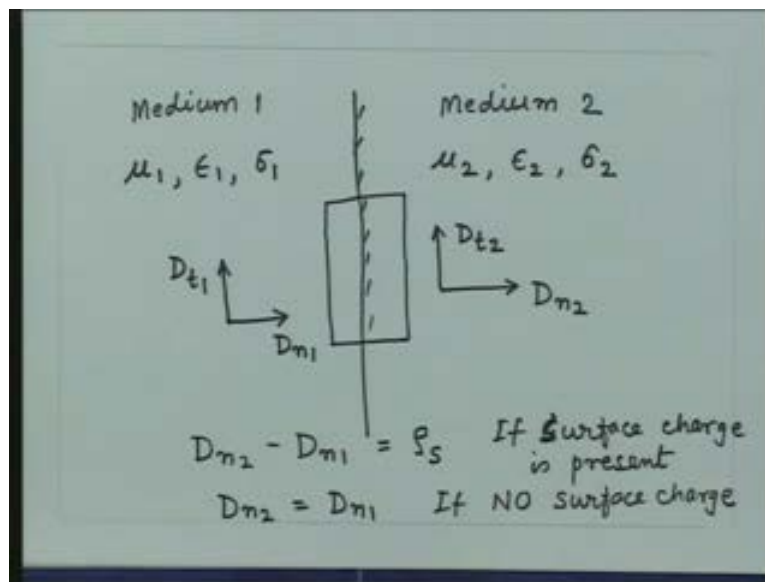 Medium 1
Medium 2
μ₁, ϵ₁, σ₁
μ₂, ϵ₂, σ₂
Dt₁
Dn₁
Dt₂
Dn₂
Dn₂ - Dn₁ = ρs If surface charge
is present
Dn₂ = Dn₁ If NO surface charge